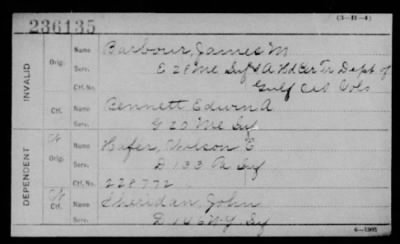 (3-11-4)
236135
INVALID
Orig. Name Barbour, James M
Serv. E 28 Me Inf & A Hd Qr Tr Dept of
Ctf. No. Gulf Cav Vols
Ctf. Name Bennett Edwin A
Serv. G 20 Me Inf
DEPENDENT
Orig. Name Hafer, Wilson E
Serv. D 133 Pa Inf
Ctf. No. 228772
Ctf. Name Sheridan, John
Serv. D 146 N.Y. Inf